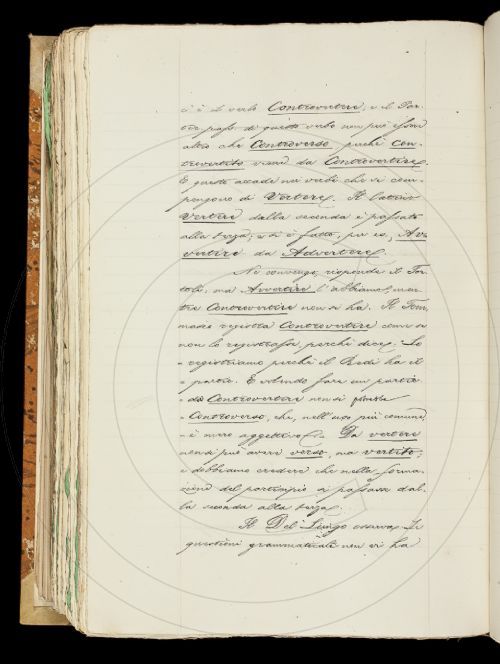 ci è il verbo Controvertere, e il Par-
ticipio pass. di questo verbo non può essere
altro che Controverso, perchè Con-
trovertito viene da Controvertire.
E questo accade nei verbi che si com-
pongono di Vertere. Il latino
Vertere dalla seconda è passato
alla terza, e si è fatto, per es., Av-
vertire da Advertere.
Ne convengo, risponde il Tor-
toli; ma Avvertire l'abbiamo, men-
tre Controvertire non si ha. Il Tom-
maseo registra Controvertere come se
non lo registrasse, perchè dice: Lo
" registriamo perchè il Redi ha il
" partic. E volendo fare un partic.
" da Controvertere non si potrebbe
" Controverso, che, nell'uso più comune,
" è mero aggettivo. Da vertere
non si può avere verso, ma vertito;
e dobbiamo credere che nella forma-
zione del participio si passasse dal-
la seconda alla terza.
Il Del Lungo osserva: Le
questioni grammaticali non si ha